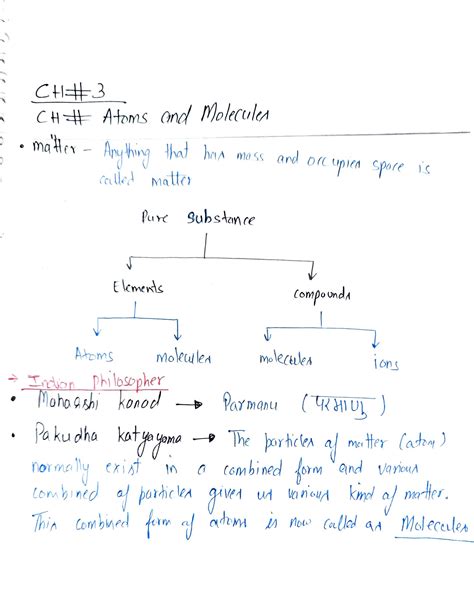 CH#3
CH# Atoms and Molecules
• matter - Anything that has mass and occupies space is
called matter
Pure Substance
Elements compounds
Atoms molecules molecules ions
→ Indian Philosopher
• Maharshi kanad → Parmanu (परमाणु)
• Pakudha katyayama → The particles of matter (atom)
normally exist in a combined form and various
combined of particles gives us various kind of matter.
This combined form of atoms is now called as Molecules